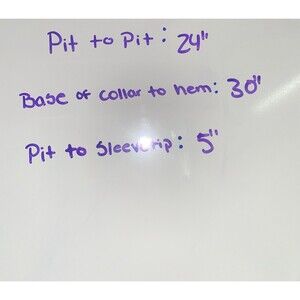 Pit to Pit: 24"
Base of collar to hem: 30"
Pit to Sleevetip: 5"